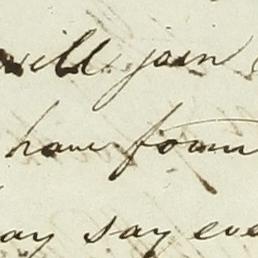 will join
have foun
ay say eve